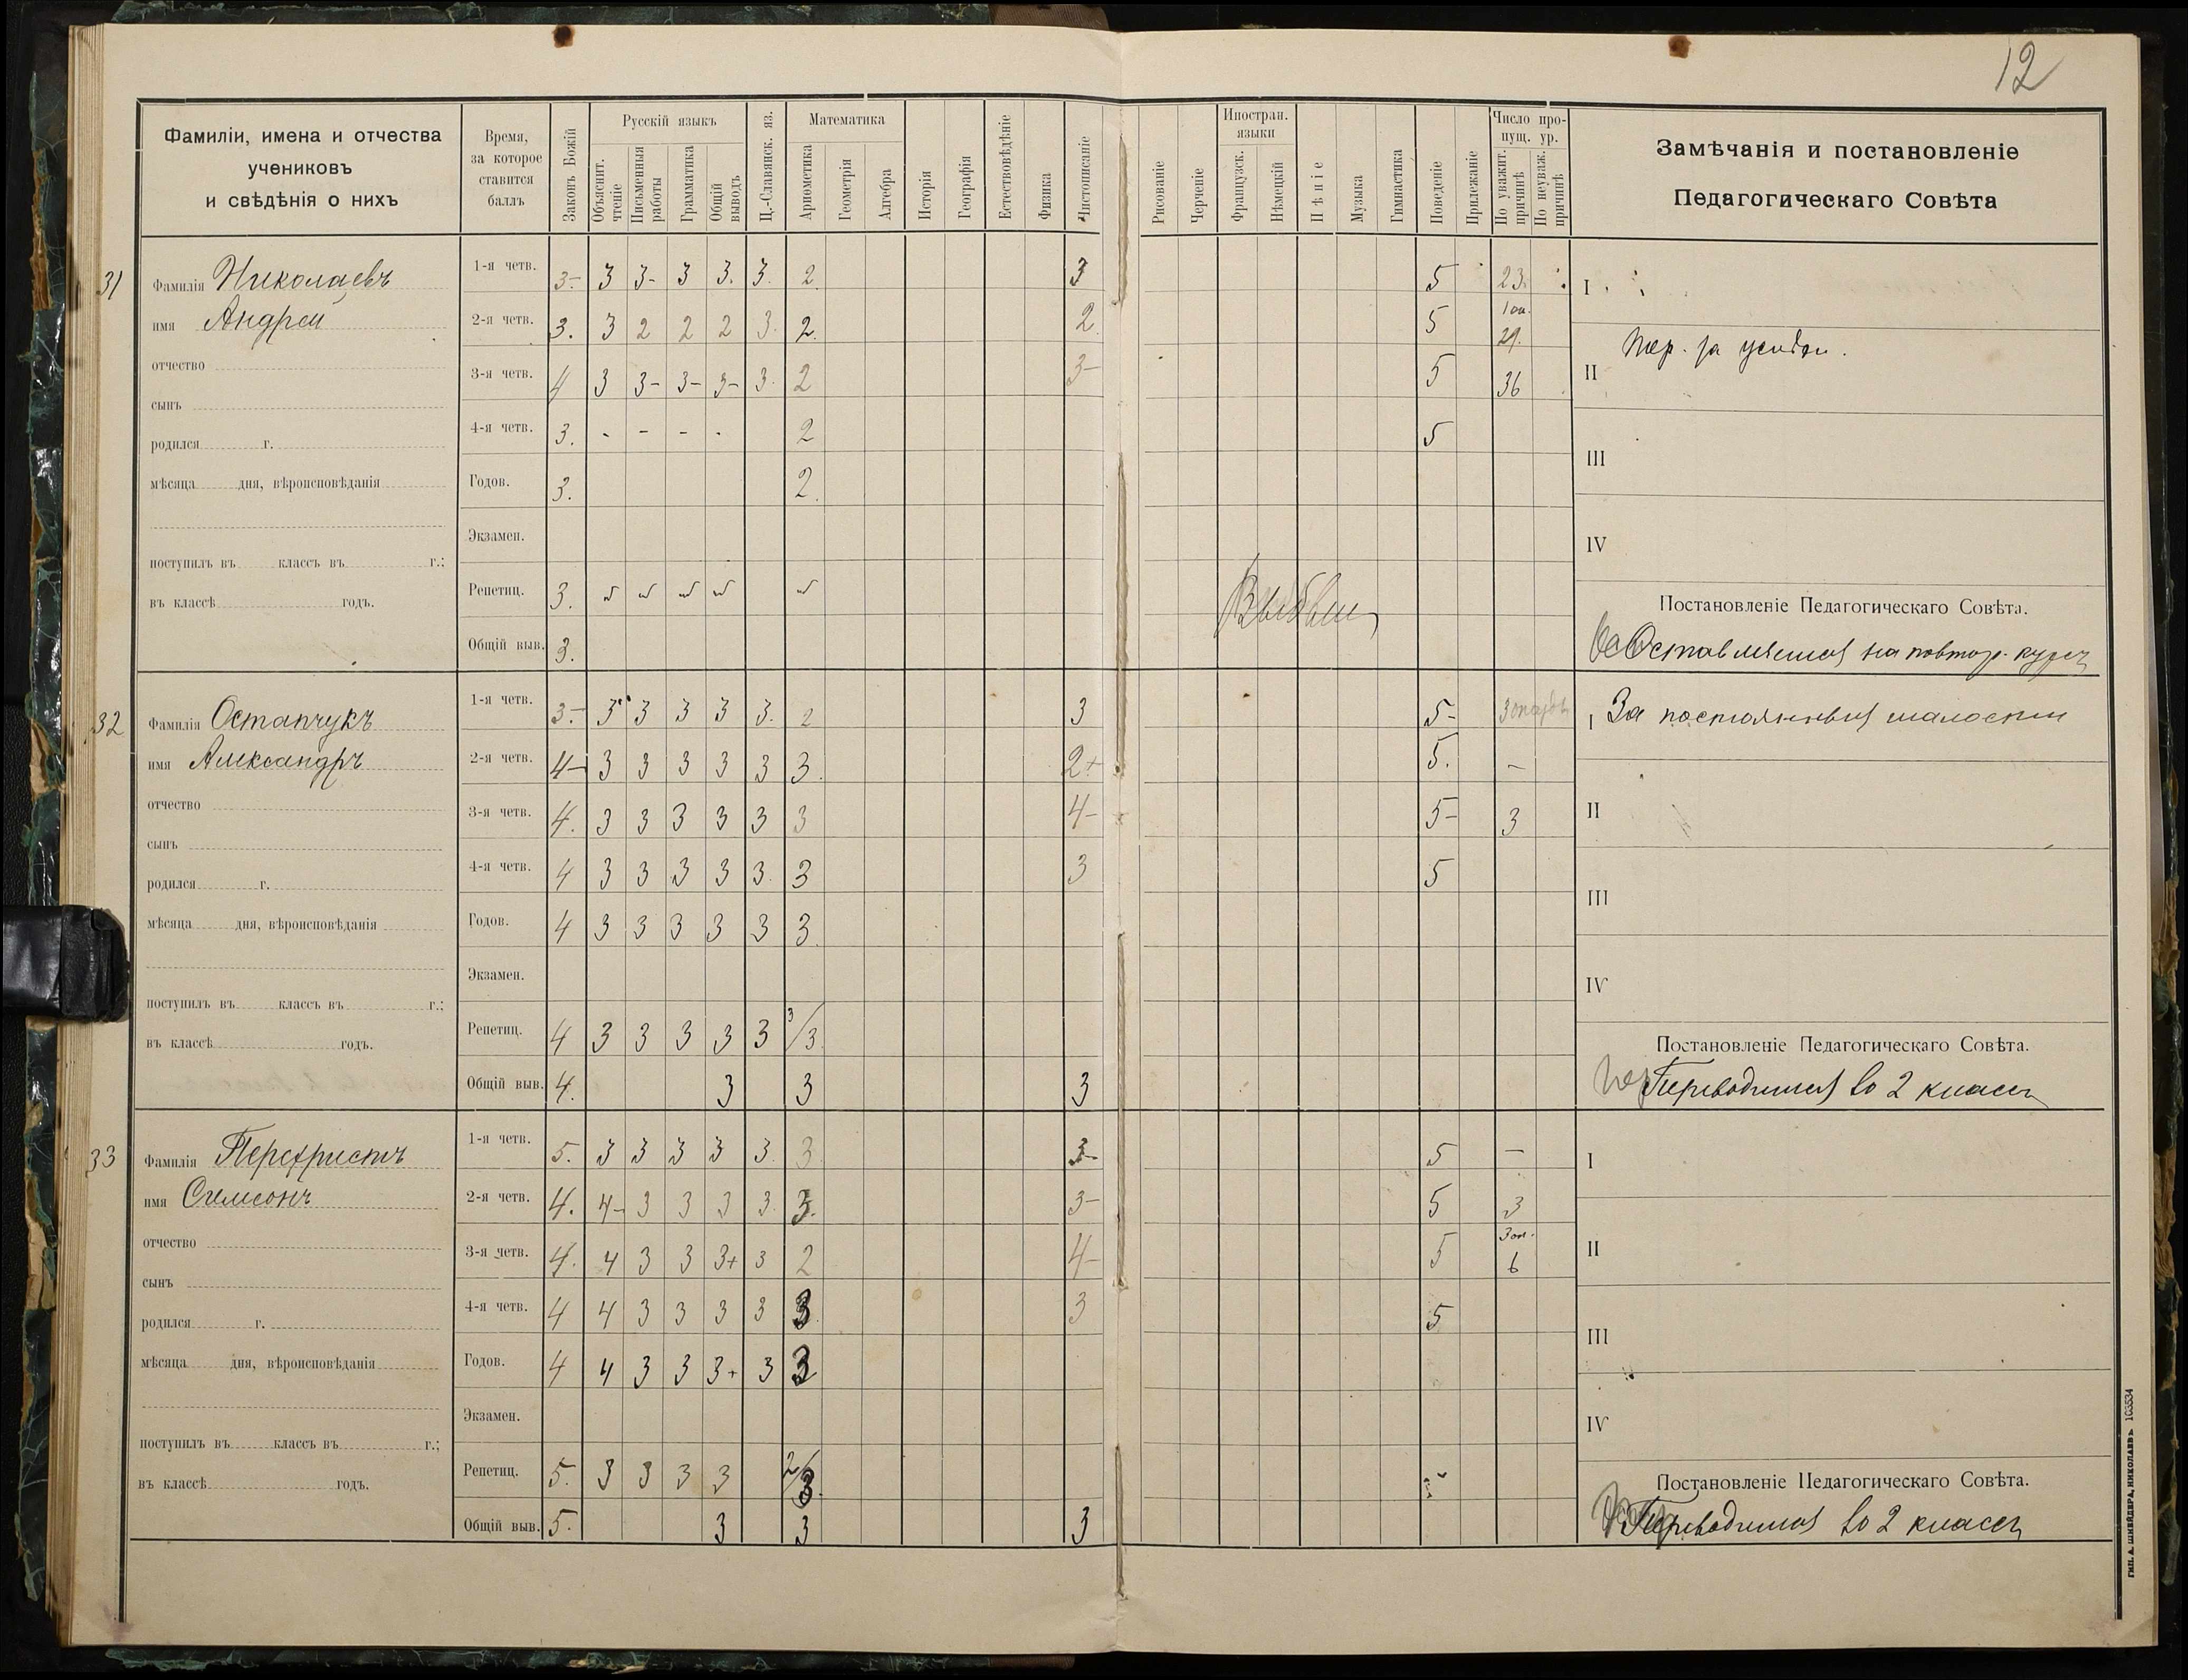 12
Фамиліи, имена и отчества
учениковъ
и свѣдѣнія о нихъ
Время,
за которое
ставится
баллъ
Законъ Божій
Русскій языкъ
Объяснит.
чтеніе
Письменныя
работы
Грамматика
Общій
выводъ
Ц.-Славянск. яз.
Математика
Ариѳметика
Геометрія
Алгебра
Исторія
Географія
Естествовѣдѣніе
Физика
Чистописаніе
Рисованіе
Черченіе
Иностран.
языки
Французск.
Нѣмецкій
Пѣніе
Музыка
Гимнастика
Поведеніе
Прилежаніе
Число про-
пущ. ур.
По уважит.
причинѣ
По неуваж.
причинѣ
Замѣчанія и постановленіе
Педагогическаго Совѣта
31
Фамилія Николаевъ
имя Андрей
отчество
сынъ
родился г.
мѣсяца дня, вѣроисповѣданія
поступилъ въ классъ въ г.;
въ классѣ годъ.
1-я четв. 3- 3 3- 3 3. 3. 2. 3 5 23.
2-я четв. 3. 3 2 2 2 3. 2. 2. 5 1 оп. 29.
3-я четв. 4 3 3- 3- 3- 3. 2 3- 5 36
4-я четв. 3. - - - - 2 5
Годов. 3. 2.
Экзамен.
Репетиц. 3.
Общій выв. 3.
Выбылъ
I
II
III
IV
Постановленіе Педагогическаго Совѣта.
Оставляется на повтор. курсъ
32
Фамилія Остапчукъ
имя Александръ
отчество
сынъ
родился г.
мѣсяца дня, вѣроисповѣданія
поступилъ въ классъ въ г.;
въ классѣ годъ.
1-я четв. 3- 3 3 3 3 3. 2 3 5- 3 опозд.
2-я четв. 4- 3 3 3 3 3 3. 2+ 5. –
3-я четв. 4. 3 3 3 3 3 3 4- 5- 3
4-я четв. 4 3 3 3 3 3. 3 3 5
Годов. 4 3 3 3 3 3 3.
Экзамен.
Репетиц. 4 3 3 3 3 3 3/3.
Общій выв. 4. 3 3 3
I За постоянныя шалости
II
III
IV
Постановленіе Педагогическаго Совѣта.
Переводится во 2 классъ
33
Фамилія Перехристъ
имя Симсонъ
отчество
сынъ
родился г.
мѣсяца дня, вѣроисповѣданія
поступилъ въ классъ въ г.;
въ классѣ годъ.
1-я четв. 5. 3 3 3 3 3. 3. 3- 5 –
2-я четв. 4. 4- 3 3 3 3. 3. 3- 5 3
3-я четв. 4. 4 3 3 3+ 3 2 4- 5 3 оп. 6
4-я четв. 4 4 3 3 3 3 3. 3 5
Годов. 4 4 3 3 3+ 3 3
Экзамен.
Репетиц. 5. 3 3 3 3 2/3.
Общій выв. 5. 3 3 3
I
II
III
IV
Постановленіе Педагогическаго Совѣта.
Переводится во 2 классъ
ТИП. А. ШНЕЙДЕРА, НИКОЛАЕВЪ 103534